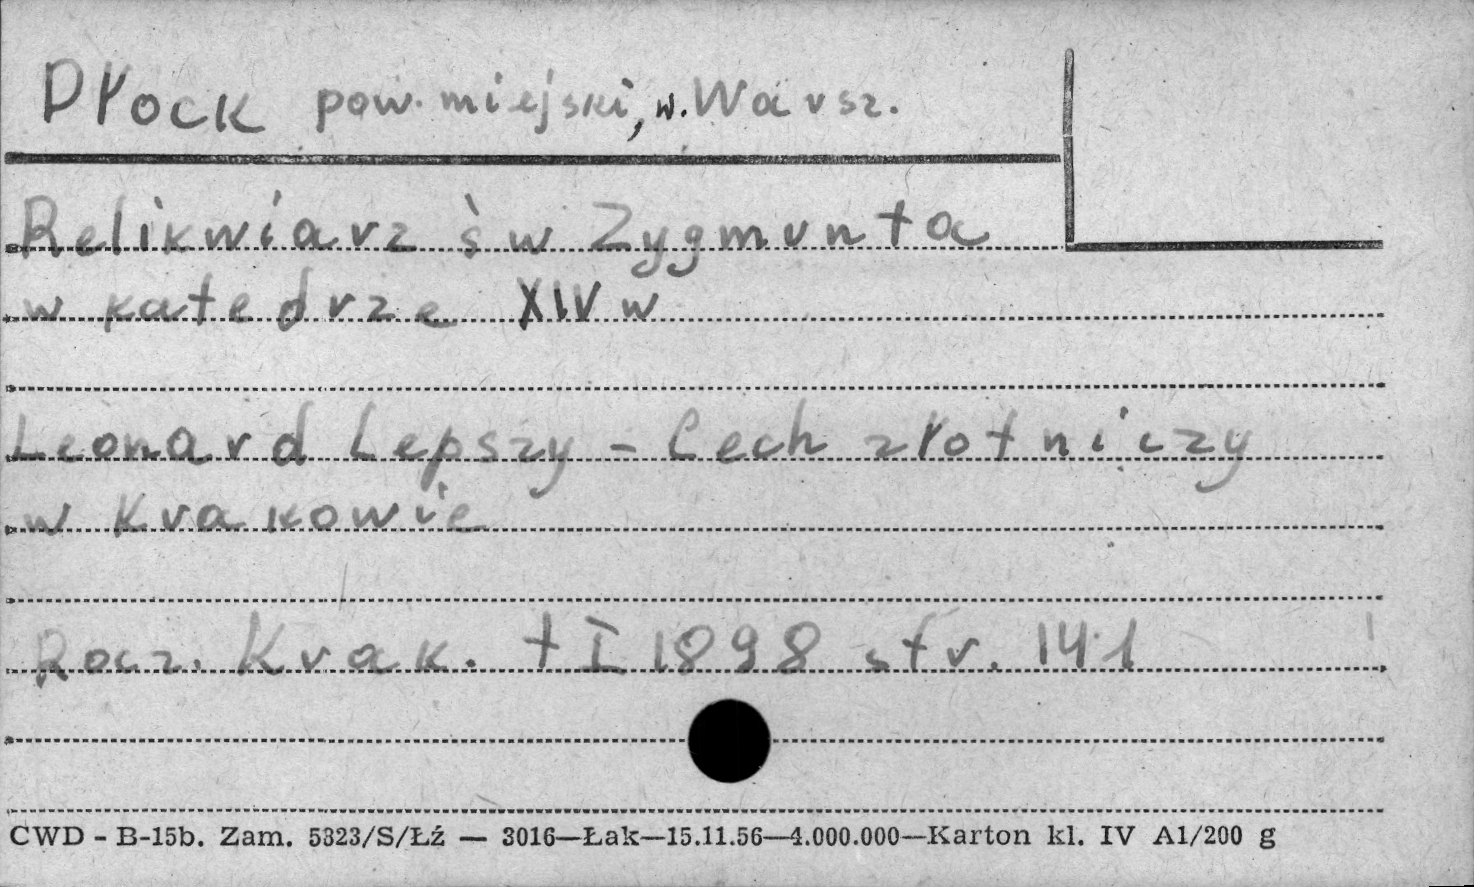 Płock pow. miejski, w. Warsz.
Relikwiarz św Zygmunta
w katedrze XIV w
Leonard Lepszy - Cech złotniczy
w Krakowie
Rocz. Krak. t I 1898 str. 141
CWD - B-15b. Zam. 5323/S/Łź — 3016—Łak—15.11.56—4.000.000—Karton kl. IV A1/200 g